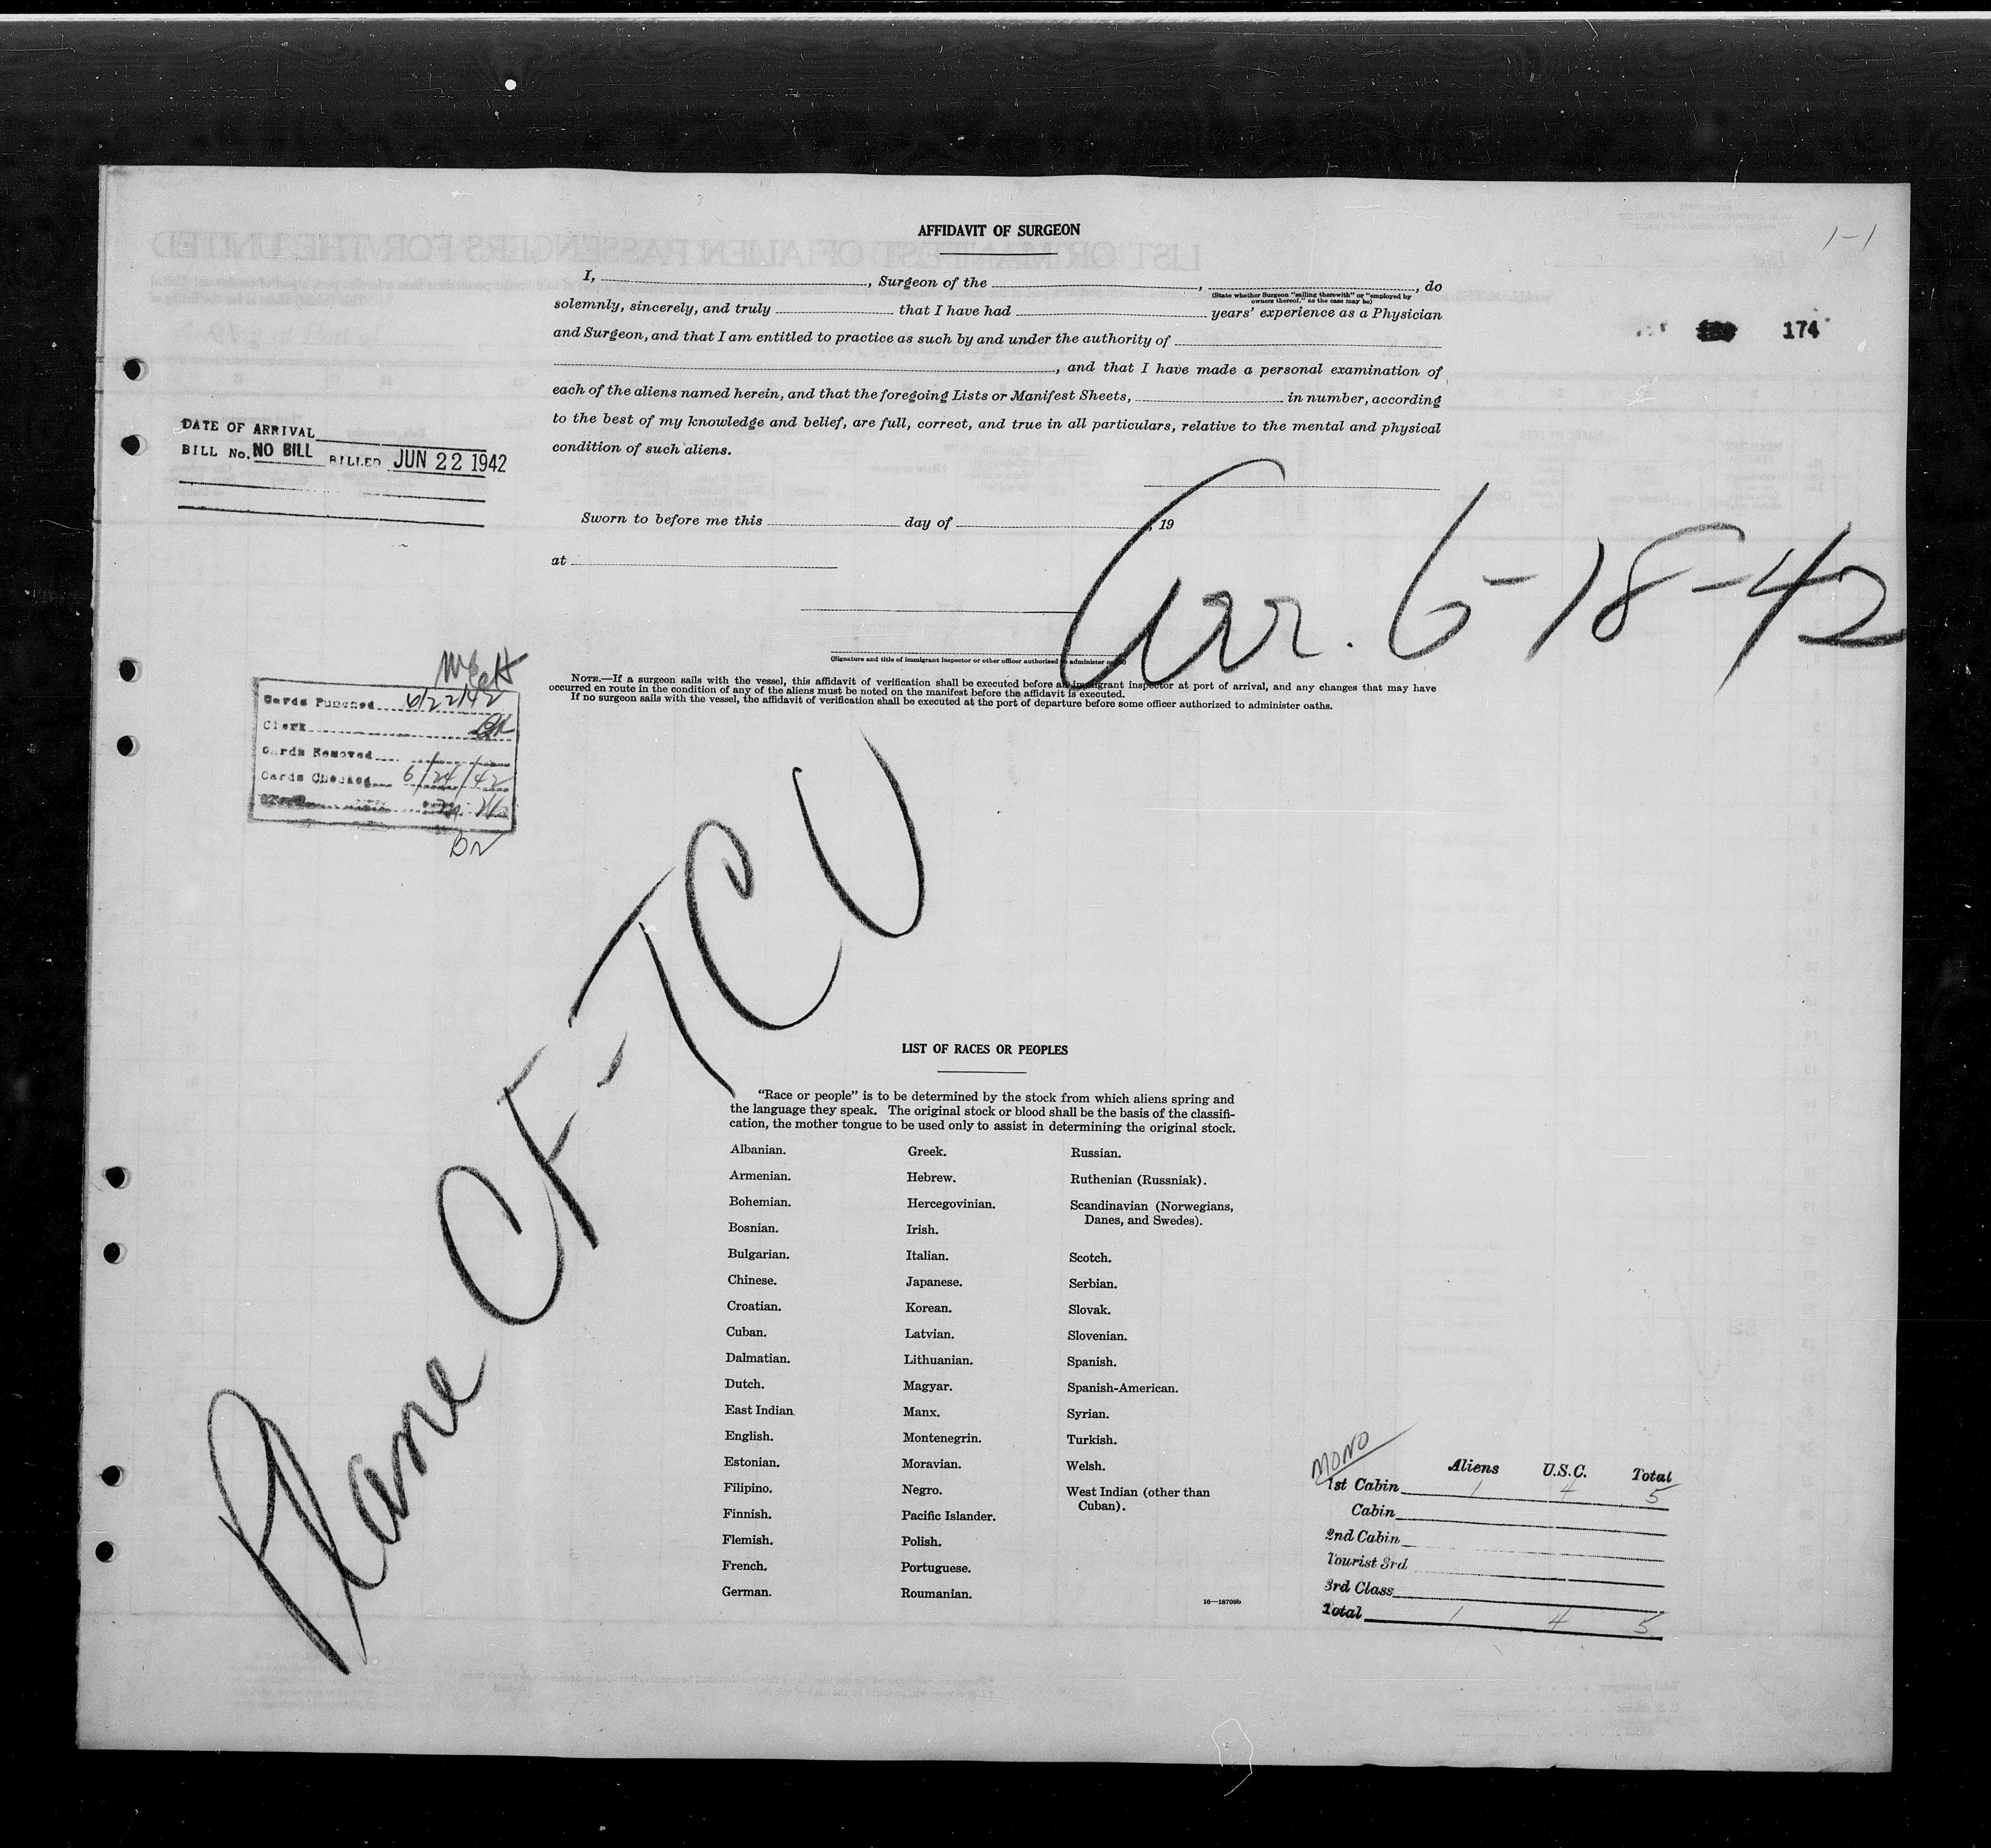 AFFIDAVIT OF SURGEON
1-1
I, , Surgeon of the , , do
(State whether Surgeon "sailing therewith" or "employed by
owners thereof," as the case may be)
solemnly, sincerely, and truly that I have had years' experience as a Physician
and Surgeon, and that I am entitled to practice as such by and under the authority of
174
, and that I have made a personal examination of
each of the aliens named herein, and that the foregoing Lists or Manifest Sheets, in number, according
to the best of my knowledge and belief, are full, correct, and true in all particulars, relative to the mental and physical
condition of such aliens.
DATE OF ARRIVAL
BILL No. NO BILL BILLED JUN 22 1942
Sworn to before me this day of , 19
at
Arr. 6-18-42
(Signature and title of immigrant inspector or other officer authorized to administer oaths)
NOTE.—If a surgeon sails with the vessel, this affidavit of verification shall be executed before an immigrant inspector at port of arrival, and any changes that may have
occurred en route in the condition of any of the aliens must be noted on the manifest before the affidavit is executed.
If no surgeon sails with the vessel, the affidavit of verification shall be executed at the port of departure before some officer authorized to administer oaths.
Cards Punched 6/22/42
Clerk
Cards Removed
Cards Checked 6/24/42
Plane CF-TCU
LIST OF RACES OR PEOPLES
"Race or people" is to be determined by the stock from which aliens spring and
the language they speak. The original stock or blood shall be the basis of the classifi-
cation, the mother tongue to be used only to assist in determining the original stock.
Albanian.
Armenian.
Bohemian.
Bosnian.
Bulgarian.
Chinese.
Croatian.
Cuban.
Dalmatian.
Dutch.
East Indian
English.
Estonian.
Filipino.
Finnish.
Flemish.
French.
German.
Greek.
Hebrew.
Hercegovinian.
Irish.
Italian.
Japanese.
Korean.
Latvian.
Lithuanian.
Magyar.
Manx.
Montenegrin.
Moravian.
Negro.
Pacific Islander.
Polish.
Portuguese.
Roumanian.
Russian.
Ruthenian (Russniak).
Scandinavian (Norwegians,
Danes, and Swedes).
Scotch.
Serbian.
Slovak.
Slovenian.
Spanish.
Spanish-American.
Syrian.
Turkish.
Welsh.
West Indian (other than
Cuban).
16—18709b
MONO
Aliens U.S.C. Total
1st Cabin 1 4 5
Cabin
2nd Cabin
Tourist 3rd
3rd Class
Total 1 4 5